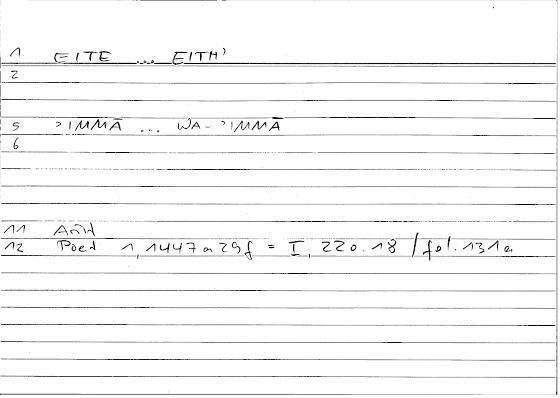 1 EITE ... EITH'
2
5 >IMMĀ ... WA->IMMĀ
6
11 Arist
12 Poet 1,1447a29f = I, 220.18 / fol. 131a